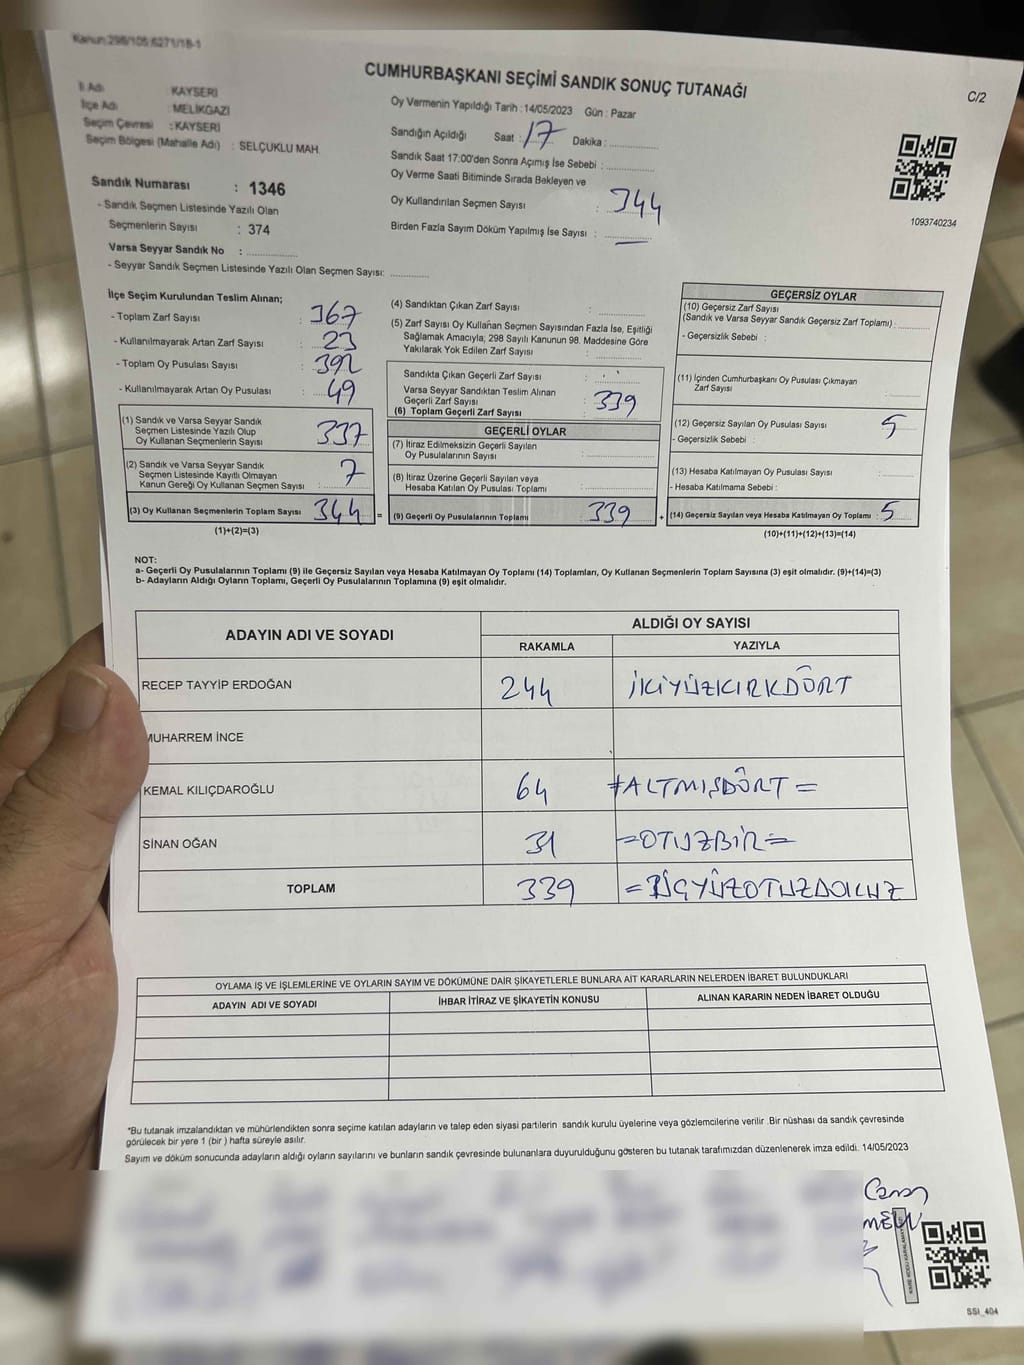 Kanun:298/105;6271/18-1
CUMHURBAŞKANI SEÇİMİ SANDIK SONUÇ TUTANAĞI
C/2
İl Adı : KAYSERİ
İlçe Adı : MELİKGAZİ
Seçim Çevresi : KAYSERİ
Seçim Bölgesi (Mahalle Adı) : SELÇUKLU MAH.
Sandık Numarası : 1346
- Sandık Seçmen Listesinde Yazılı Olan
Seçmenlerin Sayısı : 374
Varsa Seyyar Sandık No :
- Seyyar Sandık Seçmen Listesinde Yazılı Olan Seçmen Sayısı:
Oy Vermenin Yapıldığı Tarih : 14/05/2023 Gün : Pazar
Sandığın Açıldığı Saat : 17 Dakika :
Sandık Saat 17:00'den Sonra Açımış İse Sebebi :
Oy Verme Saati Bitiminde Sırada Bekleyen ve
Oy Kullandırılan Seçmen Sayısı : 344
Birden Fazla Sayım Döküm Yapılmış İse Sayısı :
1093740234
İlçe Seçim Kurulundan Teslim Alınan;
- Toplam Zarf Sayısı : 367
- Kullanılmayarak Artan Zarf Sayısı : 23
- Toplam Oy Pusulası Sayısı : 392
- Kullanılmayarak Artan Oy Pusulası : 49
(1) Sandık ve Varsa Seyyar Sandık
Seçmen Listesinde Yazılı Olup
Oy Kullanan Seçmenlerin Sayısı 337
(2) Sandık ve Varsa Seyyar Sandık
Seçmen Listesinde Kayıtlı Olmayan
Kanun Gereği Oy Kullanan Seçmen Sayısı : 7
(3) Oy Kullanan Seçmenlerin Toplam Sayısı 344 =
(1)+(2)=(3)
(4) Sandıktan Çıkan Zarf Sayısı :
(5) Zarf Sayısı Oy Kullanan Seçmen Sayısından Fazla İse, Eşitliği
Sağlamak Amacıyla; 298 Sayılı Kanunun 98. Maddesine Göre
Yakılarak Yok Edilen Zarf Sayısı :
Sandıkta Çıkan Geçerli Zarf Sayısı :
Varsa Seyyar Sandıktan Teslim Alınan
Geçerli Zarf Sayısı :
(6) Toplam Geçerli Zarf Sayısı 339
GEÇERLİ OYLAR
(7) İtiraz Edilmeksizin Geçerli Sayılan
Oy Pusulalarının Sayısı :
(8) İtiraz Üzerine Geçerli Sayılan veya
Hesaba Katılan Oy Pusulası Toplamı :
(9) Geçerli Oy Pusulalarının Toplamı : 339 +
GEÇERSİZ OYLAR
(10) Geçersiz Zarf Sayısı
(Sandık ve Varsa Seyyar Sandık Geçersiz Zarf Toplamı) :
- Geçersizlik Sebebi :
(11) İçinden Cumhurbaşkanı Oy Pusulası Çıkmayan
Zarf Sayısı :
(12) Geçersiz Sayılan Oy Pusulası Sayısı : 5
- Geçersizlik Sebebi :
(13) Hesaba Katılmayan Oy Pusulası Sayısı :
- Hesaba Katılmama Sebebi :
(14) Geçersiz Sayılan veya Hesaba Katılmayan Oy Toplamı : 5
(10)+(11)+(12)+(13)=(14)
NOT:
a- Geçerli Oy Pusulalarının Toplamı (9) ile Geçersiz Sayılan veya Hesaba Katılmayan Oy Toplamı (14) Toplamları, Oy Kullanan Seçmenlerin Toplam Sayısına (3) eşit olmalıdır. (9)+(14)=(3)
b- Adayların Aldığı Oyların Toplamı, Geçerli Oy Pusulalarının Toplamına (9) eşit olmalıdır.
ADAYIN ADI VE SOYADI ALDIĞI OY SAYISI
RAKAMLA YAZIYLA
RECEP TAYYİP ERDOĞAN 244 İKİYÜZKIRKDÖRT
MUHARREM İNCE
KEMAL KILIÇDAROĞLU 64 =ALTMIŞDÖRT=
SİNAN OĞAN 31 =OTUZBİR=
TOPLAM 339 =ÜÇYÜZOTUZDOKUZ
OYLAMA İŞ VE İŞLEMLERİNE VE OYLARIN SAYIM VE DÖKÜMÜNE DAİR ŞİKAYETLERLE BUNLARA AİT KARARLARIN NELERDEN İBARET BULUNDUKLARI
ADAYIN ADI VE SOYADI İHBAR İTİRAZ VE ŞİKAYETİN KONUSU ALINAN KARARIN NEDEN İBARET OLDUĞU
*Bu tutanak imzalandıktan ve mühürlendikten sonra seçime katılan adayların ve talep eden siyasi partilerin sandık kurulu üyelerine veya gözlemcilerine verilir .Bir nüshası da sandık çevresinde
görülecek bir yere 1 (bir ) hafta süreyle asılır.
Sayım ve döküm sonucunda adayların aldığı oyların sayılarını ve bunların sandık çevresinde bulunanlara duyurulduğunu gösteren bu tutanak tarafımızdan düzenlenerek imza edildi. 14/05/2023
SSI_404